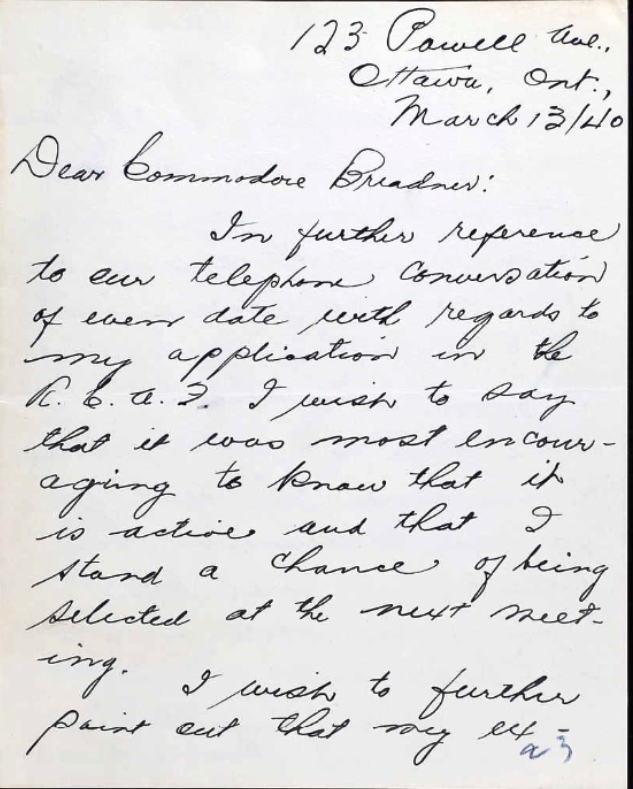 123 Powell Ave.,
Ottawa, Ont.,
March 13/40
Dear Commodore Breadner:
In further reference
to our telephone conversation
of even date with regards to
my application in the
R. C. A. F. I wish to say
that it was most encour-
aging to know that it
is active and that I
stand a chance of being
selected at the next meet-
ing.
I wish to further
point out that my ex-